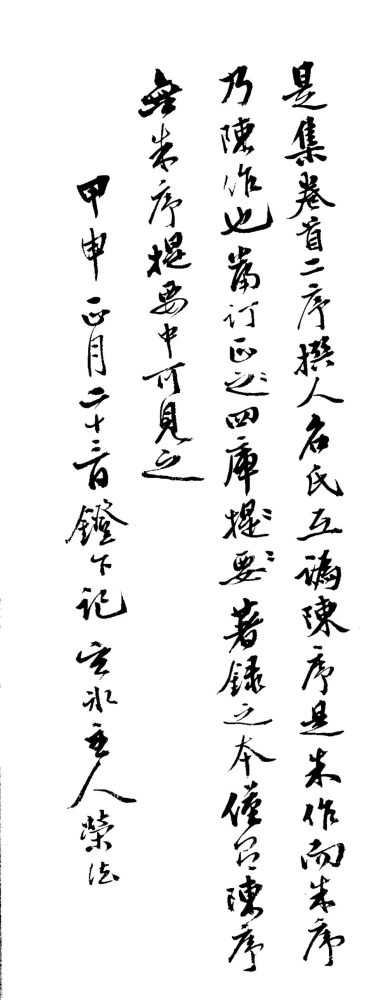 是集卷首二序撰人名氏互譌陳序是朱作而朱序
乃陳作也當訂正之四庫提要著錄之本僅有陳序
無朱序提要中可見之
甲申正月二十三日鐙下記 主人榮